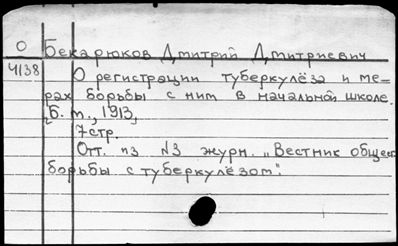 О Бекарюков Дмитрий Дмитриевич
4138 О регистрации туберкулёза и ме-
рах борьбы с ним в начальной школе.
[Б. м., 1913,
7стр.
Отт. из №3 журн. „Вестник общест
борьбы с туберкулёзом".